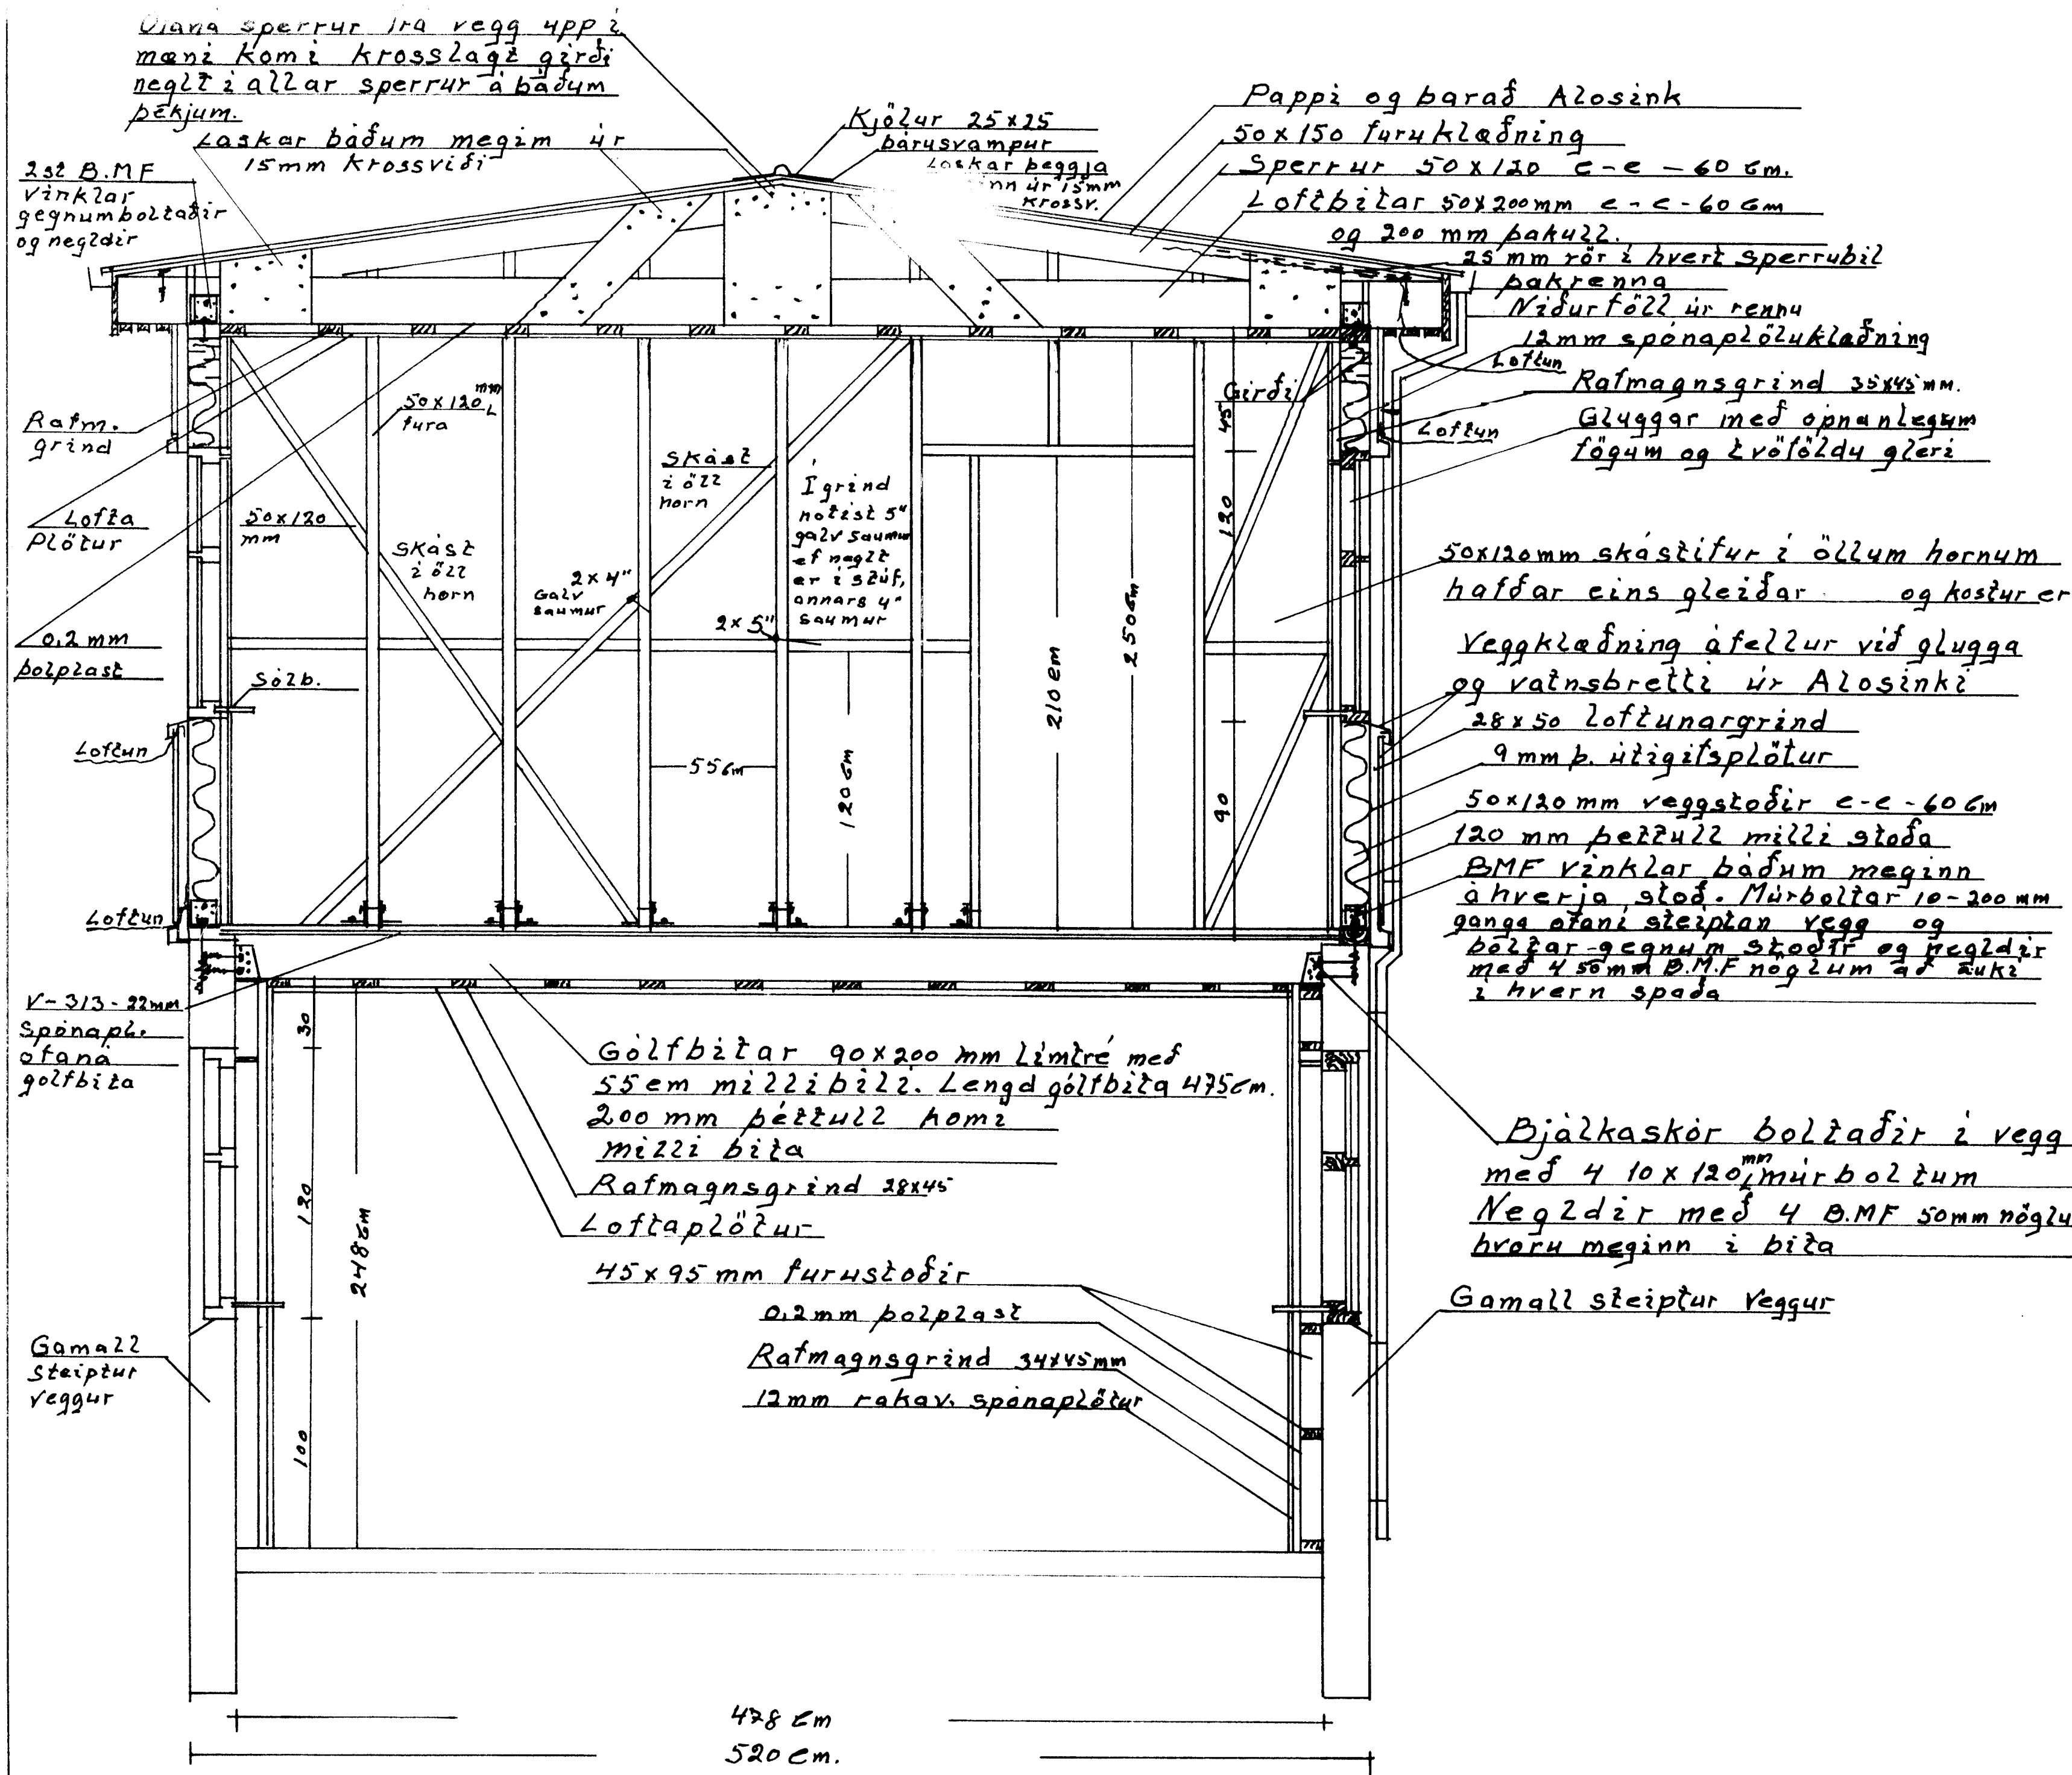 sperrur frá vegg upp í
mæni komi krosslagt girði
neglt í allar sperrur á báðum
þekjum.
Laskar báðum megim úr
15mm krossviði
2st B.MF
vinklar
gegnumboltaðir
og negldir
Kjölur 25x25
bárusvampur
Laskar beggja
nn úr 15mm
krossv.
Pappi og barað Alosink
50x150 furuklæðning
Sperrur 50x120 c-c-60cm.
Loftbitar 50x200mm c-c-60cm
og 200 mm þakull.
25 mm rör í hvert sperrubil
þakrenna
Niðurföll úr rennu
12mm spónaplötuklæðning
Loftun
Rafmagnsgrind 35x45mm.
Gluggar með opnanlegum
fögum og tvöföldu gleri
Loftun
Girði
Rafm.
grind
Lofta
Plötur
0,2 mm
þolplast
50x120 mm L
fura
50x120
mm
Skást
í öll
horn
Skást
í öll
horn
2x4"
Galv
saumur
Í grind
notist 5"
galv saumur
ef neglt
er í stúf,
annars 4"
saumur
2x5"
Sólb.
55cm
120cm
210cm
250cm
45
120
90
50x120mm skástífur í öllum hornum
hafðar eins gleiðar og kostur er
Veggklæðning áfellur við glugga
og vatnsbretti úr Alosinki
28x50 loftunargrind
9mm þ. útigifsplötur
50x120mm veggstoðir c-c-60cm
120 mm þettull milli stoða
BMF vinklar báðum meginn
á hverja stoð. Múrboltar 10-200mm
ganga ofaní steiptan vegg og
boltar gegnum stoðir og negldir
með 4 50mm B.M.F nöglum að auki
í hvern spaða
Loftun
Loftun
V-313-22mm
Spónapl.
ofaná
gólfbita
30
120
100
248cm
Gólfbitar 90x200 mm Límtré með
55cm millibili. Lengd gólfbita 475cm.
200 mm þéttull komi
milli bita
Rafmagnsgrind 28x45
Loftaplötur
45x95 mm furustoðir
0,2mm þolplast
Rafmagnsgrind 34x45mm
12mm rakav. spónaplötur
Bjálkaskór boltaðir í vegg
með 4 10x120mm L múrboltum
Negldir með 4 B.MF 50mm nöglu
hvoru meginn í bita
Gamall steiptur veggur
Gamall
steiptur
veggur
478 cm
520 cm.